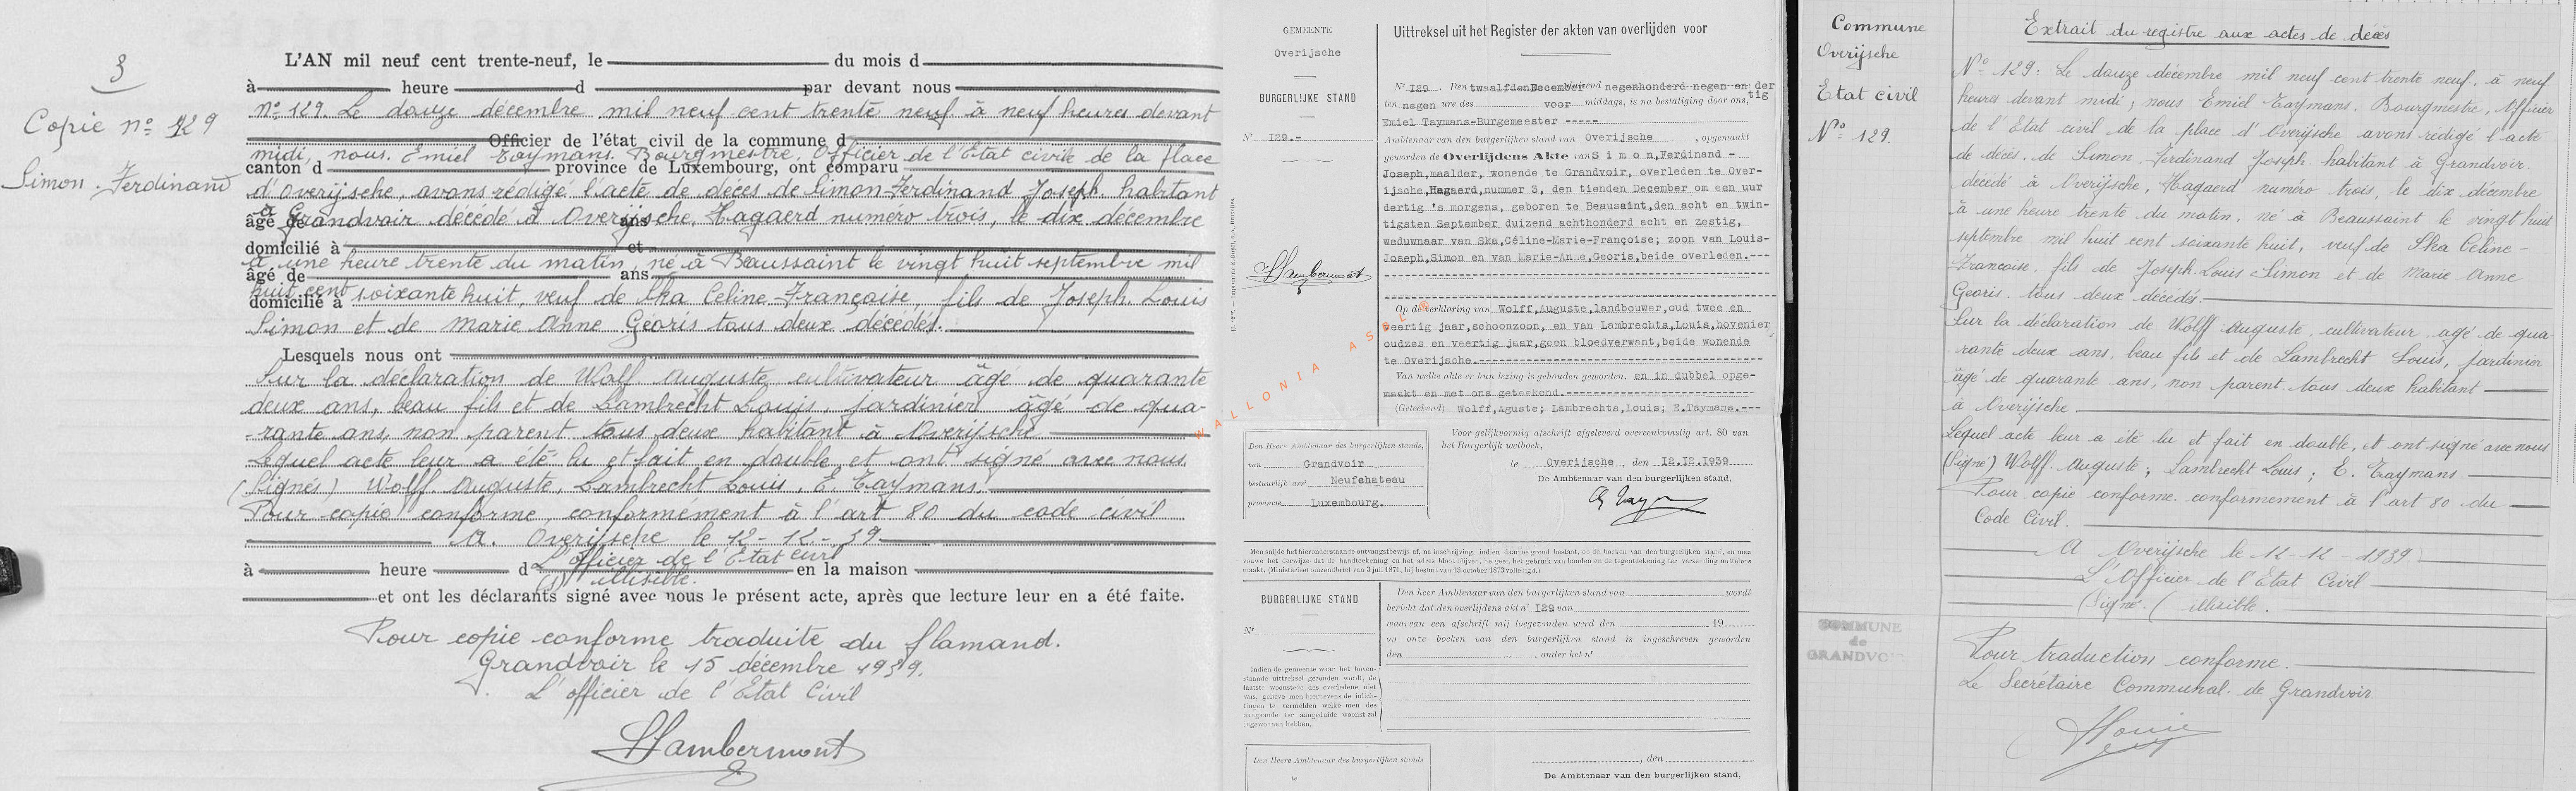 3
Copie nº 129
Simon. Ferdinand
L'AN mil neuf cent trente-neuf, le du mois d
à heure d par devant nous
nº 129. Le douze décembre mil neuf cent trente neuf à neuf heures devant
Officier de l'état civil de la commune d
midi, nous. Emiel Taymans. Bourgmestre, Officier de l'Etat civile de la place
canton d province de Luxembourg, ont comparu
d'Overijsche, avons rédigé l'acte de décès de Simon-Ferdinand Joseph. habitant
à Grandvoir décédé à Overijsche, Hagaerd numéro trois, le dix décembre
âgé de ans
domicilié à et
à une heure trente du matin, né à Beaussaint le vingt huit septembre mil
âgé de ans
huit cent soixante huit, veuf de Ska Celine-Française, fils de Joseph. Louis
domicilié à
Simon et de Marie Anne Georis tous deux décédés.
Lesquels nous ont
Sur la déclaration de Wolf Auguste, cultivateur âgé de quarante
deux ans, beau fils et de Lambrecht Louis, jardinier âgé de qua-
-rante ans, non parent tous deux habitant à Overijsche
Lequel acte leur a été lu et fait en double et ont signé avec nous.
(Signés) Wolff Auguste, Lambrecht Louis, E. Taymans.
Pour copie conforme, conformément à l'art 80 du code civil
A. Overijsche le 12-12-39
L'officier de l'Etat civil
à heure d en la maison
(s) illisible.
et ont les déclarants signé avec nous le présent acte, après que lecture leur en a été faite.
Pour copie conforme traduite du flamand.
Grandvoir le 15 décembre 1939.
L'officier de l'Etat Civil
Hambermont
GEMEENTE
Overijsche
BURGERLIJKE STAND
Nr I29.-
Hambermont
Uittreksel uit het Register der akten van overlijden voor
Nr I29 Den twaalfden December duizend negenhonderd negen en der
tig
ten negen ure des voor middags, is na bestatiging door ons,
Emiel Taymans-Burgemeester -----
Ambtenaar van den burgerlijken stand van Overijsche , opgemaakt
geworden de Overlijdens Akte van S i m o n,Ferdinand -
Joseph,maalder, wonende te Grandvoir, overleden te Over-
ijsche,Hagaerd,nummer 3, den tienden December om een uur
dertig 's morgens, geboren te Beausaint,den acht en twin-
tigsten September duizend achthonderd acht en zestig,
weduwnaar van Ska,Céline-Marie-Françoise; zoon van Louis-
Joseph,Simon en van Marie-Anne,Georis,beide overleden.---
Op de verklaring van Wolff,Auguste,landbouwer,oud twee en
veertig jaar,schoonzoon, en van Lambrechts,Louis,hovenier,
oudzes en veertig jaar,geen bloedverwant,beide wonende
te Overijsche.
Van welke akte er hun lezing is gehouden geworden. en in dubbel opge-
maakt en met ons geteekend.
(Geteekend) Wolff,Aguste; Lambrechts,Louis; E.Taymans.---
WALLONIA ASBL®
Voor gelijkvormig afschrift afgeleverd overeenkomstig art. 80 van
het Burgerlijk wetboek,
te Overijsche , den I2.I2.I939
De Ambtenaar van den burgerlijken stand,
Den Heere Ambtenaar des burgerlijken stands,
van Grandvoir
bestuurlijk arrt Neufchateau
provincie Luxembourg.
Men snijde het hieronderstaande ontvangstbewijs af, na inschrijving, indien daartoe grond bestaat, op de boeken van den burgerlijken stand, en men
vouwe het derwijze dat de handteekening en het adres bloot blijven, bezigen het gebruik van banden en de tegenteekening ter verzending nutteloos
maakt. (Ministerieel omzendbrief van 3 juli 1871, bij besluit van 13 october 1873 volledigd.)
BURGERLIJKE STAND
Nr
Indien de gemeente waar het boven-
staande uittreksel gezonden wordt, de
laatste woonstede des overledene niet
was, gelieve men hiernevens de inlich-
tingen te vermelden welke men des
aangaande ter aangeduide woonst zal
ingewonnen hebben.
Den heer Ambtenaar van den burgerlijken stand van wordt
bericht dat den overlijdens akt nr I29 van
waarvan een afschrift mij toegezonden werd den 19
op onze boeken van den burgerlijken stand is ingeschreven geworden
den , onder het nr
Den Heere Ambtenaar des burgerlijken stands
te
, den
De Ambtenaar van den burgerlijken stand,
Commune
Overijsche
Etat civil
Nº 129.
COMMUNE
de
GRANDVOIR
Extrait du registre aux actes de décès
Nº 129: Le douze décembre mil neuf cent trente neuf, à neuf
heures devant midi; nous Emiel Taymans. Bourgmestre, Officier
de l'Etat civil de la place d'Overijsche avons rédigé l'acte
de décès. de Simon Ferdinand Joseph habitant à Grandvoir.
décédé à Overijsche, Hagaerd numéro trois, le dix décembre
à une heure trente du matin. né à Beaussaint le vingt huit
septembre mil huit cent soixante huit, veuf de Ska Celine-
Francoise, fils de Joseph-Louis Simon et de Marie Anne
Georis. tous deux décédés.
Sur la déclaration de Wolff Auguste, cultivateur agé de qua
rante deux ans, beau fils et de Lambrecht Louis, Jardinier
âgé de quarante ans, non parent. tous deux habitant
à Overijsche
Lequel acte leur a été lu et fait en double, et ont signé avec nous
(Signé) Wolff. Auguste; Lambrecht Louis; E. Taymans
Pour copie conforme. conformement à l'art 80 du
Code Civil.
A Overijsche le 12-12-1939.
L'Officier de l'Etat Civil
(Signé.( illisible.
Pour traduction conforme.
Le Secrétaire Communal. de Grandvoir